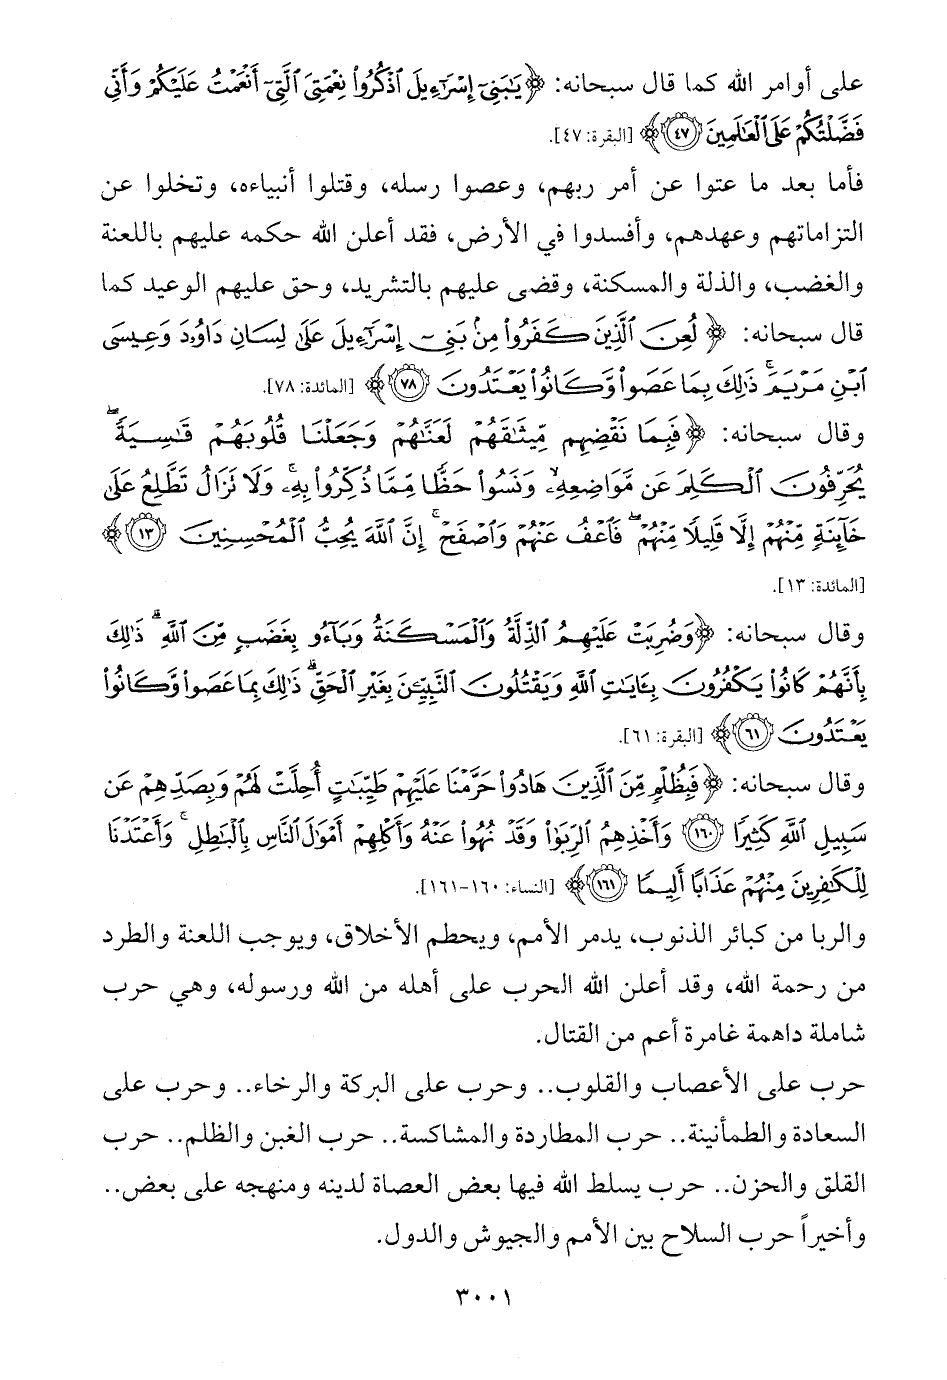 على أوامر الله كما قال سبحانه: ﴿يَٰبَنِيٓ إِسْرَٰٓءِيلَ ٱذْكُرُوا۟ نِعْمَتِيَ ٱلَّتِيٓ أَنْعَمْتُ عَلَيْكُمْ وَأَنِّي
فَضَّلْتُكُمْ عَلَى ٱلْعَٰلَمِينَ ﴿٤٧﴾﴾ [البقرة: ٤٧].
فأما بعد ما عتوا عن أمر ربهم، وعصوا رسله، وقتلوا أنبياءه، وتخلوا عن
التزاماتهم وعهدهم، وأفسدوا في الأرض، فقد أعلن الله حكمه عليهم باللعنة
والغضب، والذلة والمسكنة، وقضى عليهم بالتشريد، وحق عليهم الوعيد كما
قال سبحانه: ﴿لُعِنَ ٱلَّذِينَ كَفَرُوا۟ مِنۢ بَنِيٓ إِسْرَٰٓءِيلَ عَلَىٰ لِسَانِ دَاوُۥدَ وَعِيسَى
ٱبْنِ مَرْيَمَ ۚ ذَٰلِكَ بِمَا عَصَوا۟ وَّكَانُوا۟ يَعْتَدُونَ ﴿٧٨﴾﴾ [المائدة: ٧٨].
وقال سبحانه: ﴿فَبِمَا نَقْضِهِم مِّيثَٰقَهُمْ لَعَنَّٰهُمْ وَجَعَلْنَا قُلُوبَهُمْ قَٰسِيَةً ۖ
يُحَرِّفُونَ ٱلْكَلِمَ عَن مَّوَاضِعِهِۦ ۙ وَنَسُوا۟ حَظًّا مِّمَّا ذُكِّرُوا۟ بِهِۦ ۚ وَلَا تَزَالُ تَطَّلِعُ عَلَىٰ
خَآئِنَةٍ مِّنْهُمْ إِلَّا قَلِيلًا مِّنْهُمْ ۖ فَٱعْفُ عَنْهُمْ وَٱصْفَحْ ۚ إِنَّ ٱللَّهَ يُحِبُّ ٱلْمُحْسِنِينَ ﴿١٣﴾﴾
[المائدة: ١٣].
وقال سبحانه: ﴿وَضُرِبَتْ عَلَيْهِمُ ٱلذِّلَّةُ وَٱلْمَسْكَنَةُ وَبَآءُو بِغَضَبٍ مِّنَ ٱللَّهِ ۗ ذَٰلِكَ
بِأَنَّهُمْ كَانُوا۟ يَكْفُرُونَ بِـَٔايَٰتِ ٱللَّهِ وَيَقْتُلُونَ ٱلنَّبِيِّـۧنَ بِغَيْرِ ٱلْحَقِّ ۗ ذَٰلِكَ بِمَا عَصَوا۟ وَّكَانُوا۟
يَعْتَدُونَ ﴿٦١﴾﴾ [البقرة: ٦١].
وقال سبحانه: ﴿فَبِظُلْمٍ مِّنَ ٱلَّذِينَ هَادُوا۟ حَرَّمْنَا عَلَيْهِمْ طَيِّبَٰتٍ أُحِلَّتْ لَهُمْ وَبِصَدِّهِمْ عَن
سَبِيلِ ٱللَّهِ كَثِيرًا ﴿١٦٠﴾ وَأَخْذِهِمُ ٱلرِّبَوٰا۟ وَقَدْ نُهُوا۟ عَنْهُ وَأَكْلِهِمْ أَمْوَٰلَ ٱلنَّاسِ بِٱلْبَٰطِلِ ۚ وَأَعْتَدْنَا
لِلْكَٰفِرِينَ مِنْهُمْ عَذَابًا أَلِيمًا ﴿١٦١﴾﴾ [النساء: ١٦٠-١٦١].
والربا من كبائر الذنوب، يدمر الأمم، ويحطم الأخلاق، ويوجب اللعنة والطرد
من رحمة الله، وقد أعلن الله الحرب على أهله من الله ورسوله، وهي حرب
شاملة داهمة غامرة أعم من القتال.
حرب على الأعصاب والقلوب.. وحرب على البركة والرخاء.. وحرب على
السعادة والطمأنينة.. حرب المطاردة والمشاكسة.. حرب الغبن والظلم.. حرب
القلق والحزن.. حرب يسلط الله فيها بعض العصاة لدينه ومنهجه على بعض..
وأخيراً حرب السلاح بين الأمم والجيوش والدول.
٣٠٠١